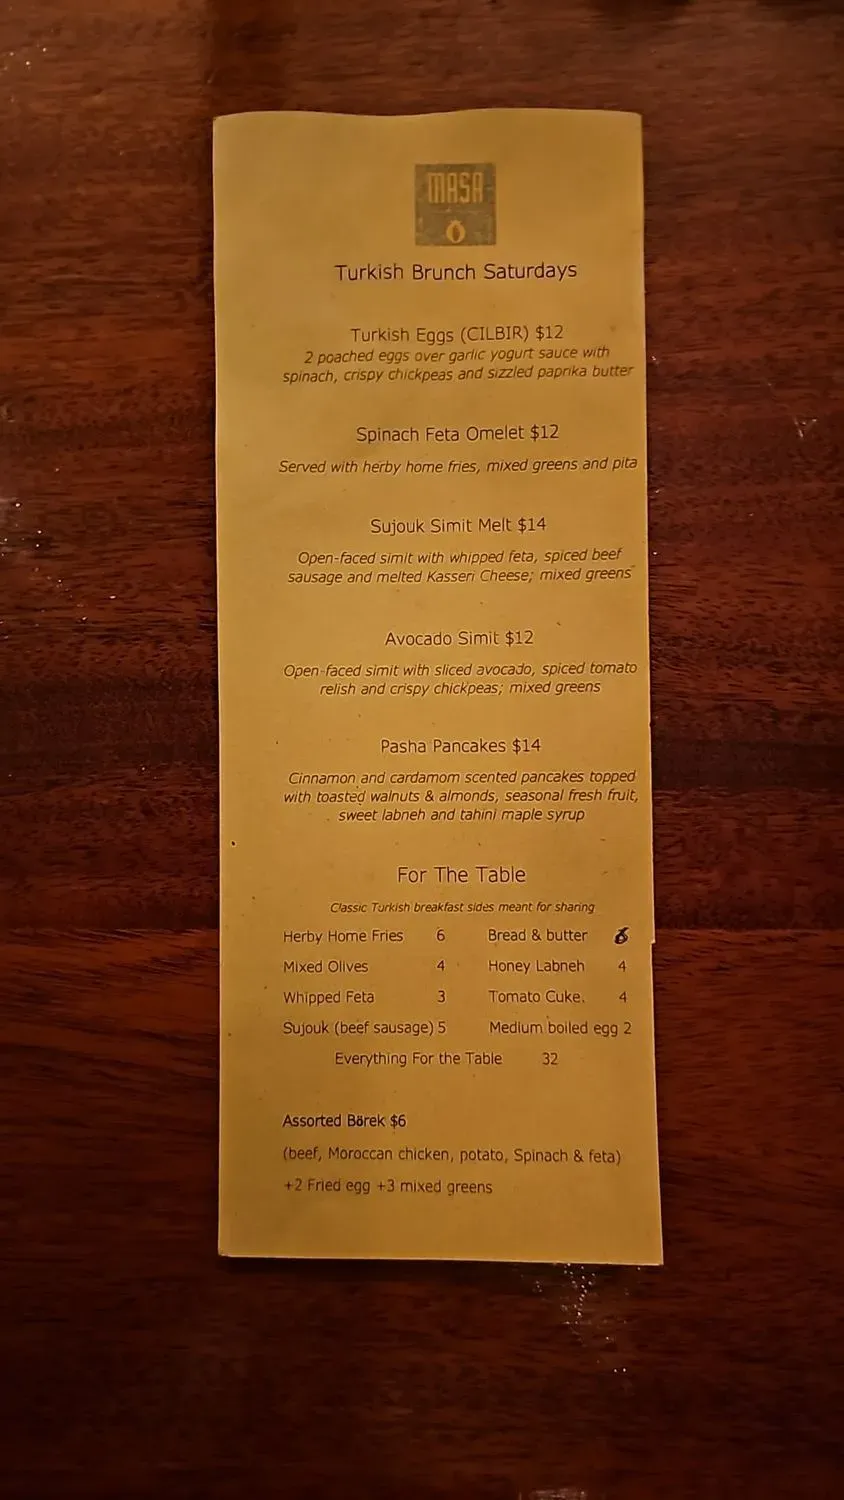 MASA
Turkish Brunch Saturdays
Turkish Eggs (CILBIR) $12
2 poached eggs over garlic yogurt sauce with
spinach, crispy chickpeas and sizzled paprika butter
Spinach Feta Omelet $12
Served with herby home fries, mixed greens and pita
Sujouk Simit Melt $14
Open-faced simit with whipped feta, spiced beef
sausage and melted Kasseri Cheese; mixed greens
Avocado Simit $12
Open-faced simit with sliced avocado, spiced tomato
relish and crispy chickpeas; mixed greens
Pasha Pancakes $14
Cinnamon and cardamom scented pancakes topped
with toasted walnuts & almonds, seasonal fresh fruit,
sweet labneh and tahini maple syrup
For The Table
Classic Turkish breakfast sides meant for sharing
Herby Home Fries 6 Bread & butter 6
Mixed Olives 4 Honey Labneh 4
Whipped Feta 3 Tomato Cuke. 4
Sujouk (beef sausage) 5 Medium boiled egg 2
Everything For the Table 32
Assorted Börek $6
(beef, Moroccan chicken, potato, Spinach & feta)
+2 Fried egg +3 mixed greens